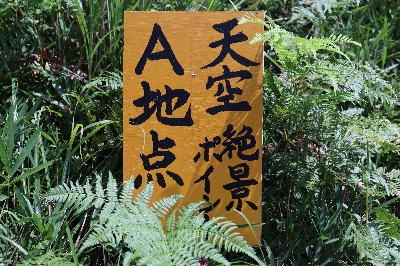 天空
絶景
ポイント
A地点